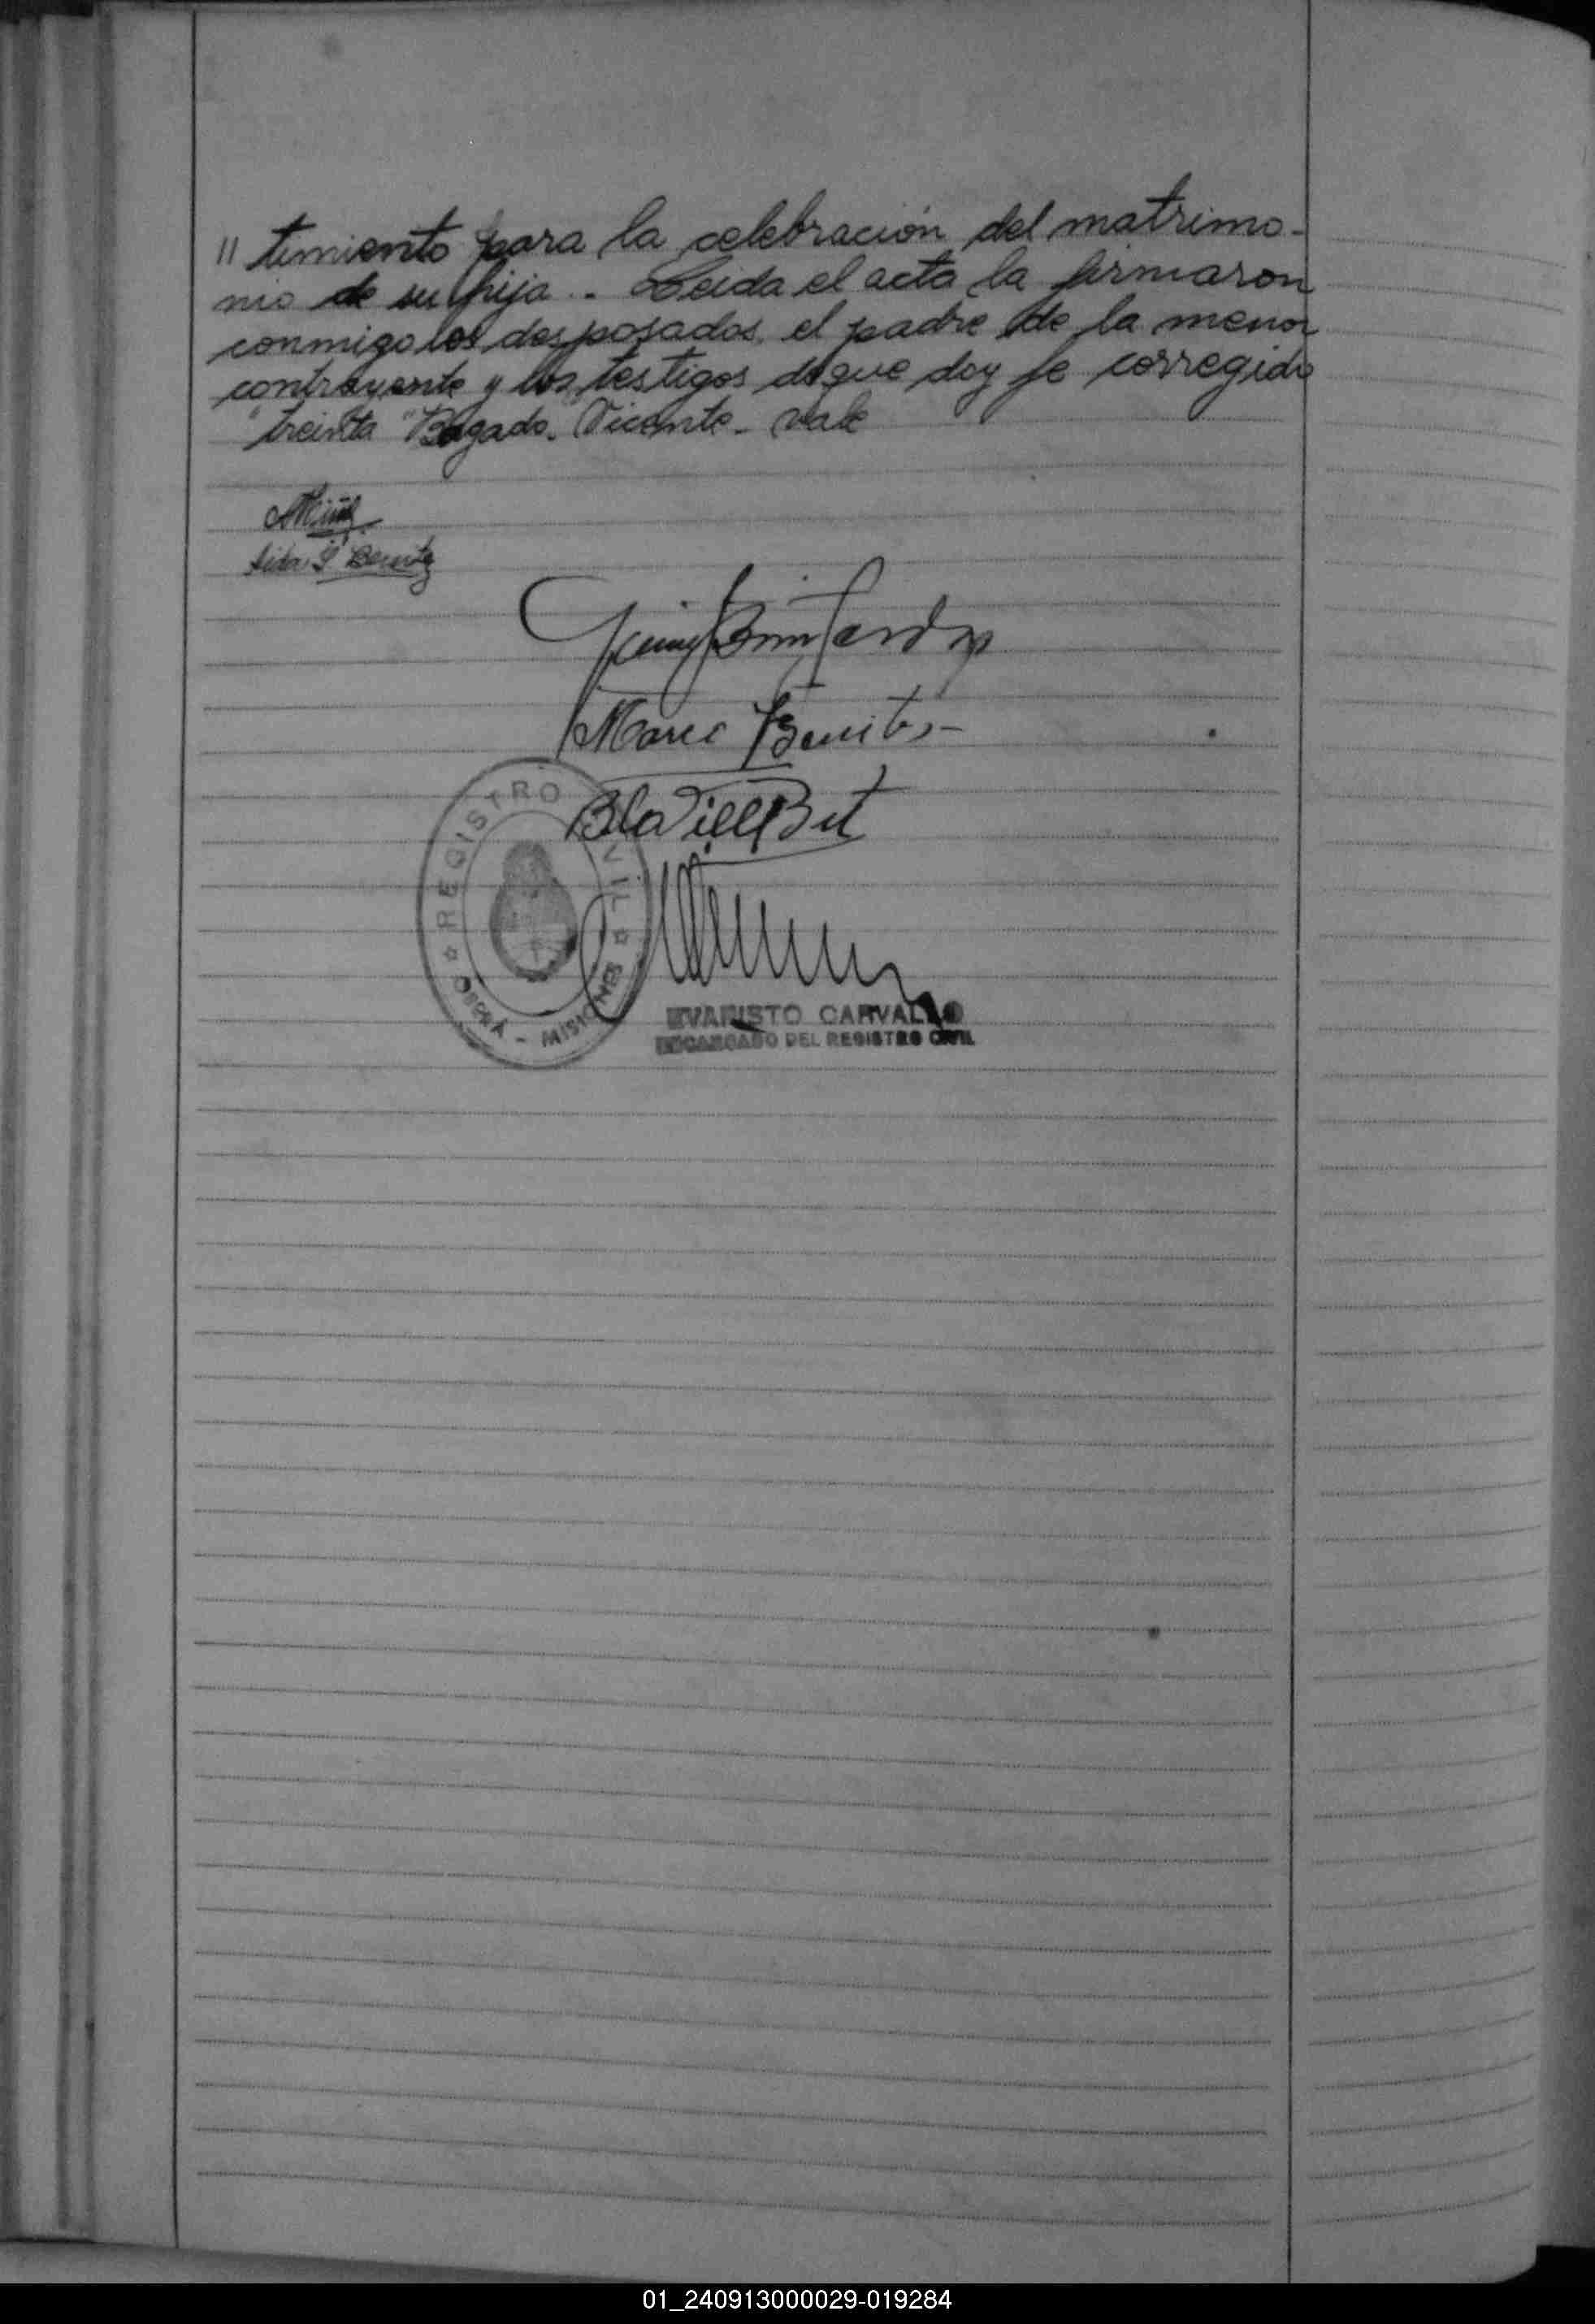 " timiento para la celebración del matrimo-
nio de su hija.. Leida el acta la firmaron
conmigo los desposados, el padre de la menor
contrayente y los testigos de que doy fe corregido
"treinta" Bogado. Vicente - vale
Aida S Benitez
Benitez
REGISTRO CIVIL
OBERÁ - MISIONES
EVARISTO CARVALLO
ENCARGADO DEL REGISTRO CIVIL
01_240913000029-019284